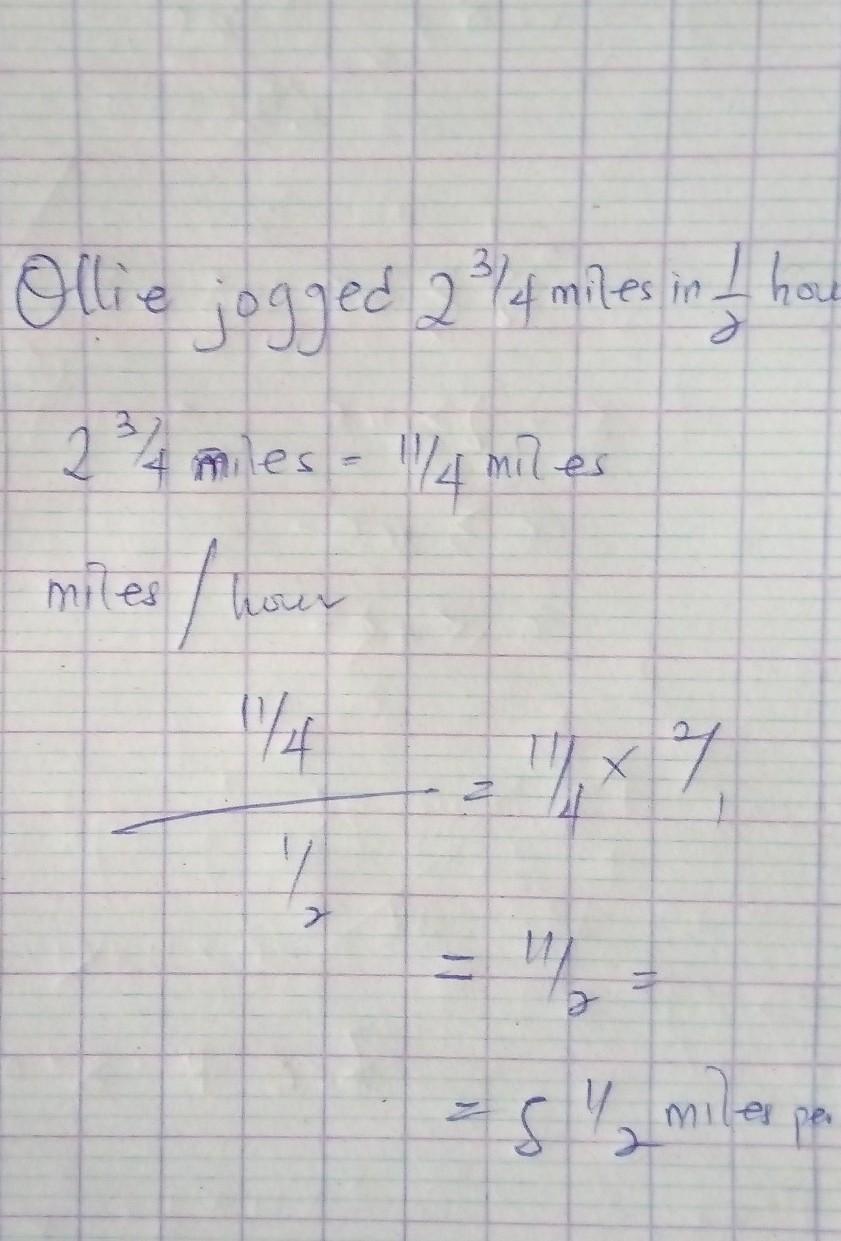 Ollie jogged 2 3/4 miles in 1/2 hou
2 3/4 miles = 11/4 miles
miles / hour
11/4
= 11/4 × 2/1
1/2
= 11/2 =
= 5 1/2 miles per